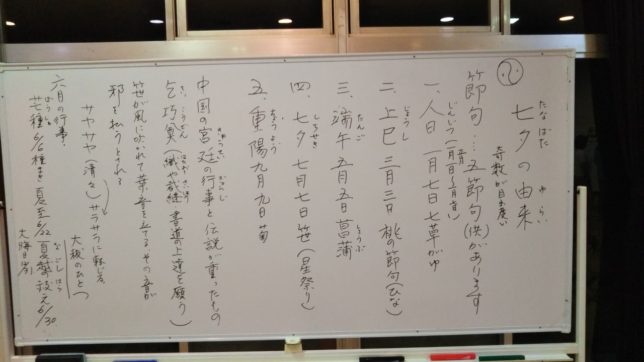 七夕の由来
たなばた ゆらい
奇数が目出度い
節句…五節句(供)があります
じんじつ(一月一日は元旦)
一、人日 一月七日 七草がゆ
じょうし
二、上巳 三月三日 桃の節句(ひな)
たんご しょうぶ
三、端午 五月五日 菖蒲
しちせき
四、七夕 七月七日 笹(星祭り)
ちょうよう
五、重陽 九月九日 菊
きゅうてい
中国の宮廷の行事と伝説が重ったもの
きこうでん
乞巧奠(織や裁縫 書道の上達を願う)
笹が風に吹かれて葉音を立てるその音が
邪を払うとされる
サヤサヤ(清々)サラサラに転じる
大祓のひとつ
六月の行事?
ぼうしゅ なごしはらえ
芒種 6/6種まき 夏至6/22 夏越祓え6/30
大晦日